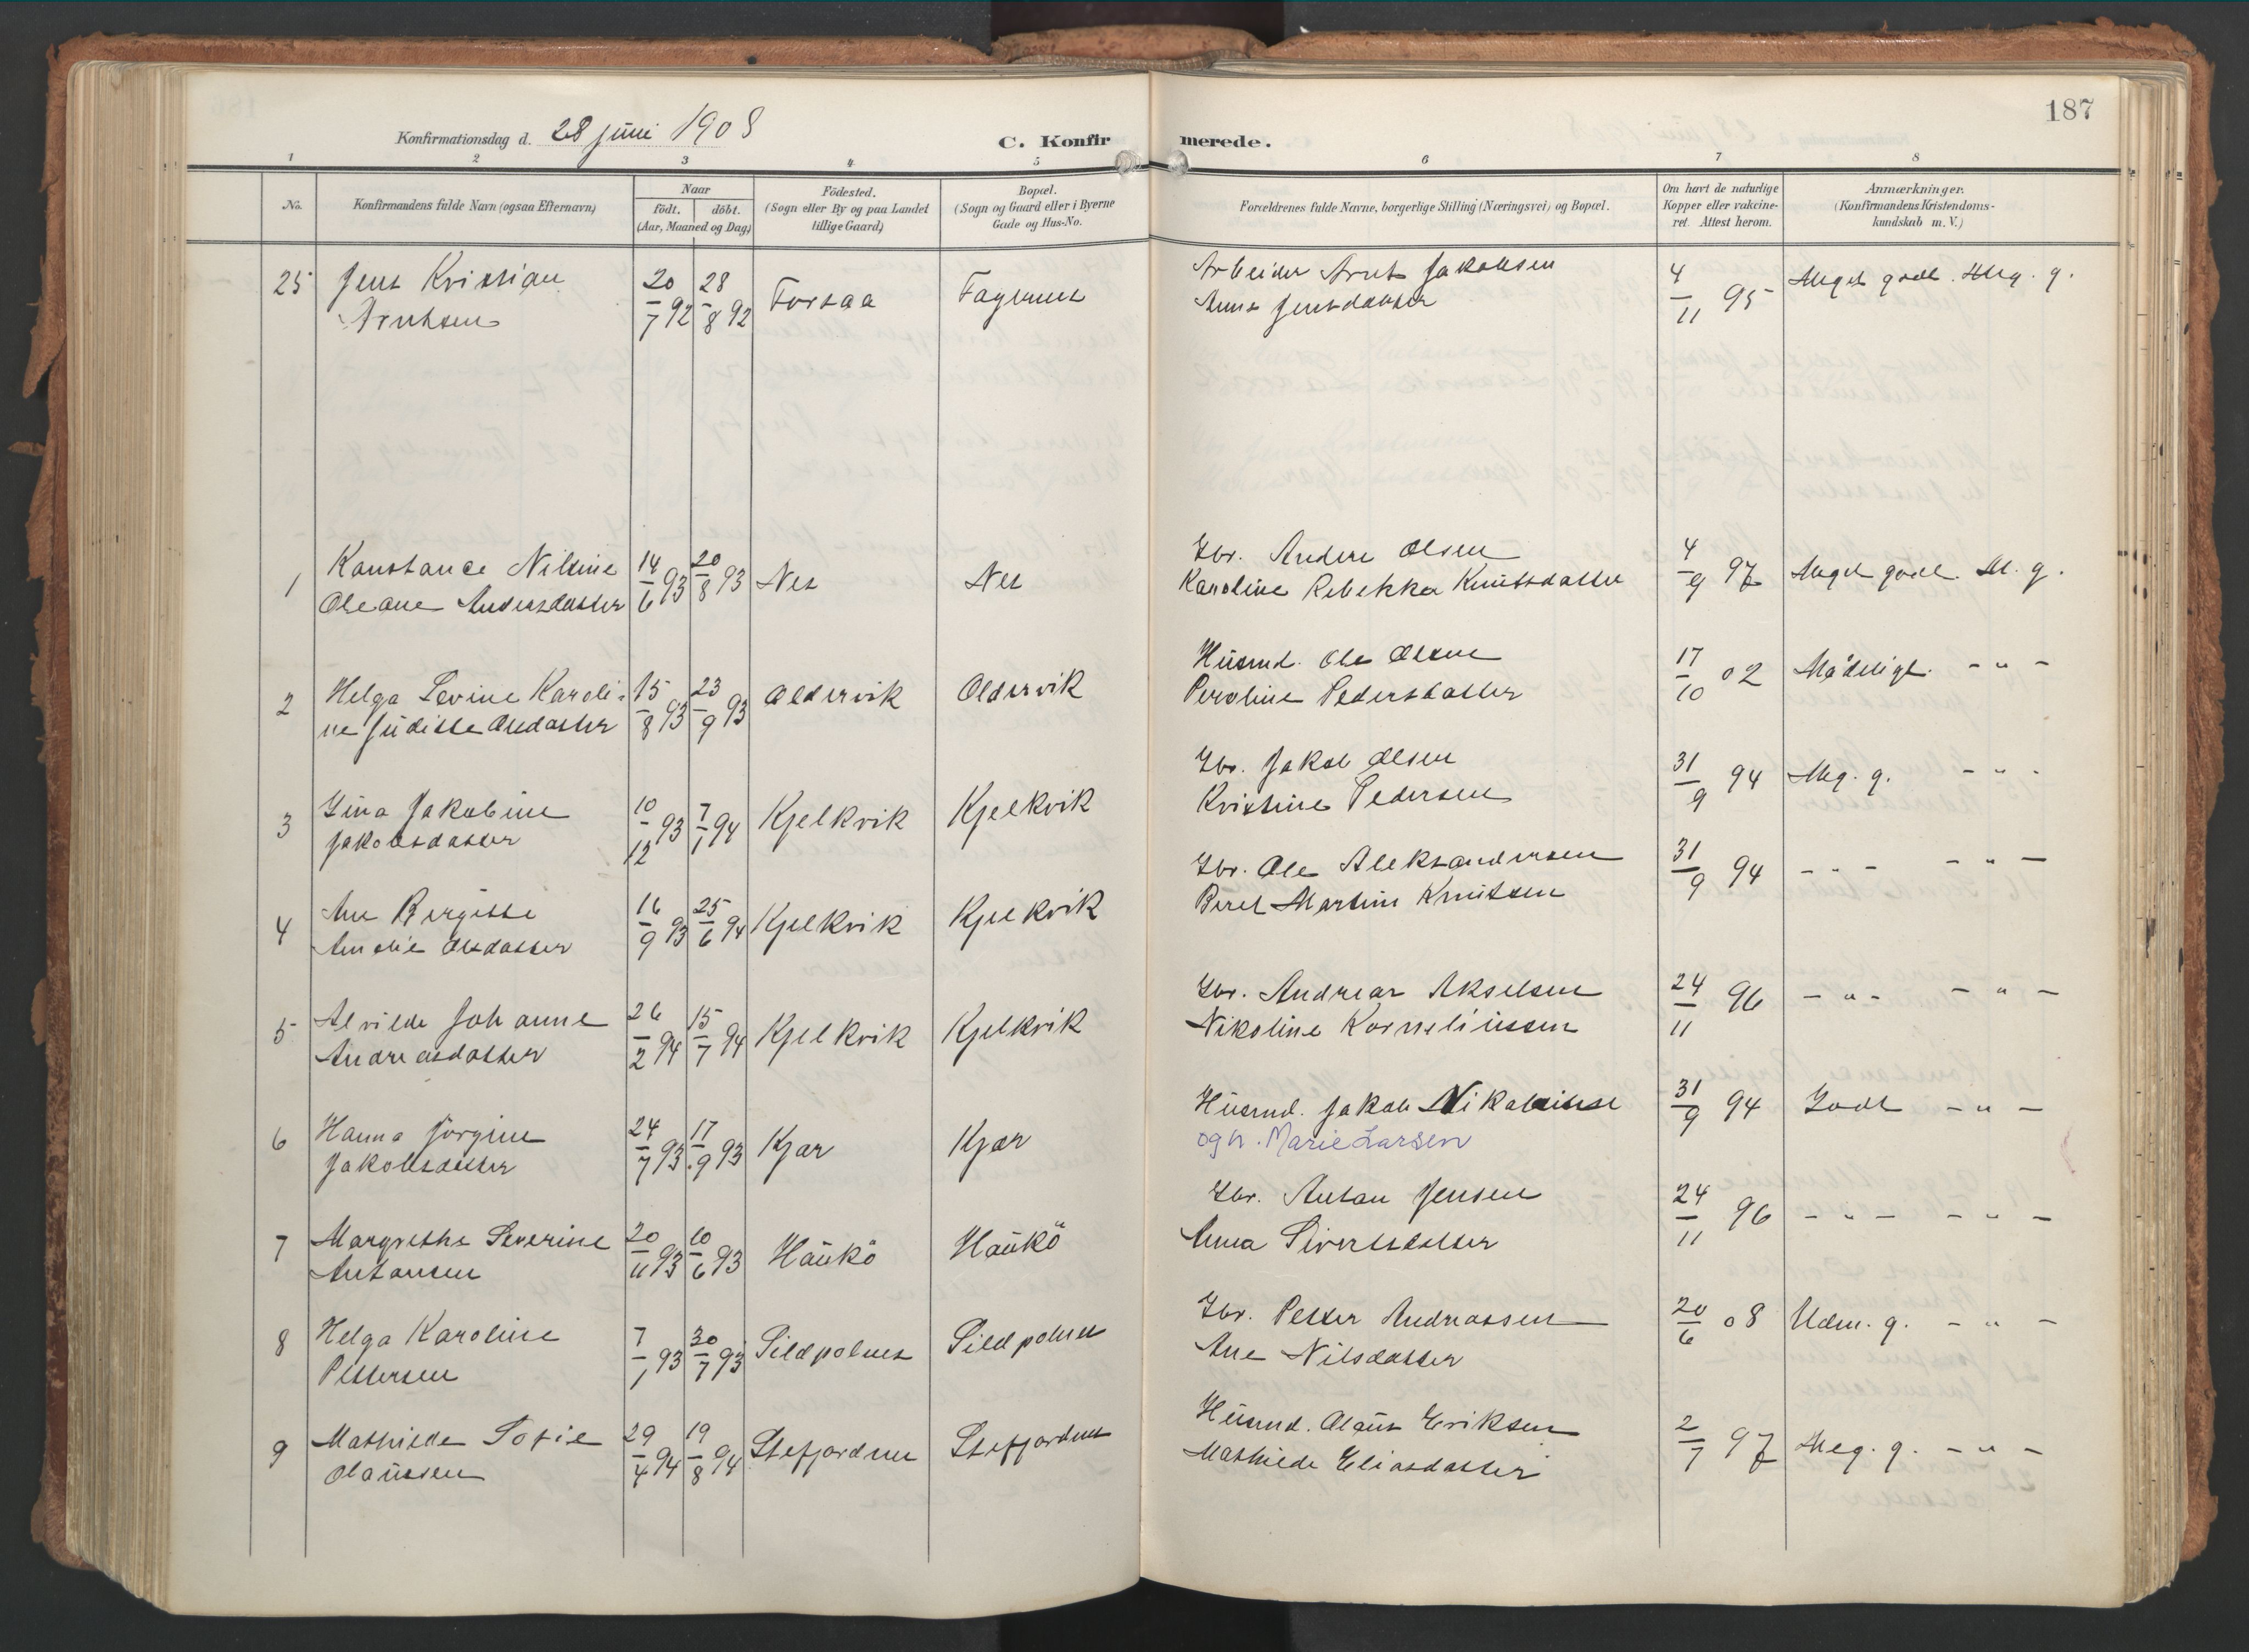 187
Konfirmationsdag d. 28 juni 1908
C. Konfirmerede.
1 2 3 4 5 6 7 8
No.
Konfirmandens fulde Navn (ogsaa Efternavn)
Naar
födt. döbt.
(Aar, Maaned og Dag)
Födested.
(Sogn eller By og paa Landet
tillige Gaard)
Bopæl.
(Sogn og Gaard eller i Byerne
Gade og Hus-No.
Forældrenes fulde Navne, borgerlige Stilling (Næringsvei) og Bopæl.
Om havt de naturlige
Kopper eller vakcine-
ret. Attest herom.
Anmærkninger.
(Konfirmandens Kristendoms-
kundskab m. V.)
25 Jens Kristian 20/7 92 28/8 92 Forsaa Fagernes Arbeider Arnt Jakobsen 4/11 95 Meget godt. Meg. g.
Arntsen Anna Jensdatter
1 Konstance Nilsine 14/6 93 20/8 93 Nes Nes Gbr. Anders Olsen 4/9 97 Meget godt. M. g.
Oleane Andersdatter Karoline Rebekka Knutsdatter
2 Helga Levine Karoli- 15/8 93 23/9 93 Oldervik Oldervik Husmd. Ole Olsen 17/10 02 Mådeligt. - " -
ne Juditte Olsdatter Peroline Pedersdatter
3 Gina Jakobine 10/12 93 7/1 94 Kjelkvik Kjelkvik Gbr. Jakob Olsen 31/9 94 Meg. g. - " -
Jakobsdatter Kristine Pedersen
4 Ane Bergitte 16/9 93 25/6 94 Kjelkvik Kjelkvik Gbr. Ole Aleksandersen 31/9 94 - " - - " -
Amalie Olsdatter Beret Martine Knutsen
5 Alvilde Johanne 26/2 94 15/7 94 Kjelkvik Kjelkvik Gbr. Andreas Akselsen 24/11 96 - " - - " -
Andreasdatter Nikoline Korneliussen
6 Hanna Jörgine 24/7 93 17/9 93 Kjær Kjær Husmd. Jakob 31/9 94 Godt - " -
Jakobsdatter og h. Marie Larsen
7 Margrethe Severine 20/11 93 10/6 93 Haukö Haukö Gbr. Anton Jensen 24/11 96 - " - - " -
Antonsen Anna Sivertsdatter
8 Helga Karoline 7/1 93 30/7 93 Sildpolnes Sildpolnes Gbr. Petter Andreassen 20/6 08 Udm. g. - " -
Pettersen Ane Nilsdatter
9 Mathilde Sofie 29/4 94 19/8 94 Stefjordnes Stefjordnes Husmd. Olaus Eriksen 2/7 97 Meg. g. - " -
Olaussen Mathilde Eliasdatter